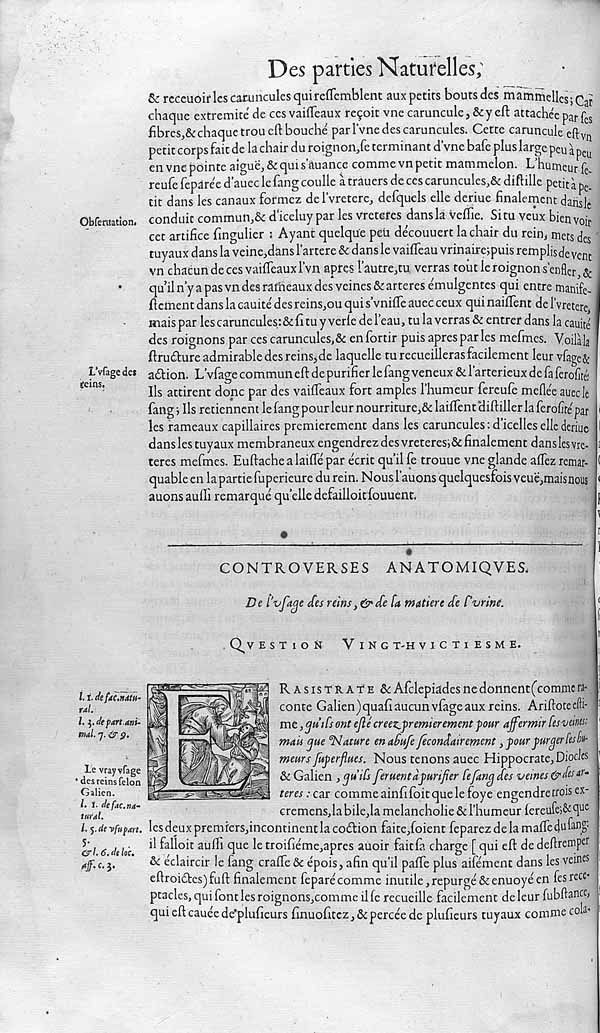 Des parties Naturelles,
& receuoir les caruncules qui reſſemblent aux petits bouts des mammelles; Car
chaque extremité de ces vaiſſeaux reçoit vne caruncule, & y eſt attachée par ſes
fibres, & chaque trou eſt bouché par l'vne des caruncules. Cette caruncule eſt vn
petit corps fait de la chair du roignon, ſe terminant d'vne baſe plus large peu à peu
en vne pointe aiguë, & qui s'auance comme vn petit mammelon. L'humeur ſe-
reuſe ſeparée d'auec le ſang coulle à trauers de ces caruncules, & diſtille petit à pe-
tit dans les canaux formez de l'vretere, deſquels elle deriue finalement dans le
Obſeruation.
conduit commun, & d'iceluy par les vreteres dans la veſſie. Si tu veux bien voir
cet artifice ſingulier : Ayant quelque peu découuert la chair du rein, mets des
tuyaux dans la veine, dans l'artere & dans le vaiſſeau vrinaire; puis remplis de vent
vn chacun de ces vaiſſeaux l'vn apres l'autre, tu verras tout le roignon s'enfler, &
qu'il n'y a pas vn des rameaux des veines & arteres émulgentes qui entre manife-
ſtement dans la cauité des reins, ou qui s'vniſſe auec ceux qui naiſſent de l'vretere,
mais par les caruncules: & ſi tu y verſe de l'eau, tu la verras & entrer dans la cauité
des roignons par ces caruncules, & en ſortir puis apres par les meſmes. Voilà la
ſtructure admirable des reins, de laquelle tu recueilleras facilement leur vſage &
L'vſage des
reins.
action. L'vſage commun eſt de purifier le ſang veneux & l'arterieux de ſa ſeroſité
Ils attirent donc par des vaiſſeaux fort amples l'humeur ſereuſe meſlée auec le
ſang; Ils retiennent le ſang pour leur nourriture, & laiſſent diſtiller la ſeroſité par
les rameaux capillaires premierement dans les caruncules: d'icelles elle deriue
dans les tuyaux membraneux engendrez des vreteres; & finalement dans les vre-
teres meſmes. Euſtache a laiſſé par écrit qu'il ſe trouue vne glande aſſez remar-
quable en la partie ſuperieure du rein. Nous l'auons quelquesfois veuë, mais nous
auons auſſi remarqué qu'elle defailloit ſouuent.
CONTROVERSES ANATOMIQVES.
De l'vſage des reins, & de la matiere de l'vrine.
QVESTION VINGT-HVICTIESME.
l. 1. de fac. natu-
ral.
l. 3. de part. ani-
mal. 7. & 9.
Le vray vſage
des reins ſelon
Galien.
l. 1. de fac. na-
tural.
l. 5. de vſu part.
5.
& l. 6. de loc.
aff. c. 3.
ERASISTRATE & Aſclepiades ne donnent (comme ra-
conte Galien) quaſi aucun vſage aux reins. Ariſtote eſti-
me, qu'ils ont eſté creez premierement pour affermir les veines:
mais que Nature en abuſe ſecondairement, pour purger les hu-
meurs ſuperflues. Nous tenons auec Hippocrate, Diocles
& Galien, qu'ils ſeruent à purifier le ſang des veines & des ar-
teres: car comme ainſi ſoit que le foye engendre trois ex-
cremens, la bile, la melancholie & l'humeur ſereuſe; & que
les deux premiers, incontinent la coction faite, ſoient ſeparez de la maſſe du ſang:
il falloit auſſi que le troiſiéme, apres auoir fait ſa charge [ qui eſt de deſtremper
& éclaircir le ſang craſſe & épois, afin qu'il paſſe plus aiſément dans les veines
eſtroictes) fuſt finalement ſeparé comme inutile, repurgé & enuoyé en ſes rece-
ptacles, qui ſont les roignons, comme il ſe recueille facilement de leur ſubſtance,
qui eſt cauée de pluſieurs ſinuoſitez, & percée de pluſieurs tuyaux comme cola-